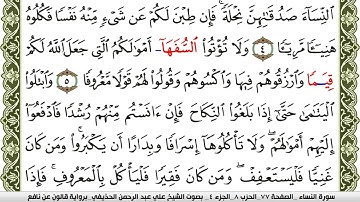 النِّسَآءَ صَدُقَٰتِهِنَّ نِحْلَةً فَإِن طِبْنَ لَكُمْ عَن شَيْءٍ مِّنْهُ نَفْسًا فَكُلُوهُ
هَنِيٓـًٔا مَّرِيٓـًٔا ٤ وَلَا تُؤْتُوا۟ السُّفَهَآ أَمْوَٰلَكُمُ الَّتِي جَعَلَ اللَّهُ لَكُمْ
قِيَمًا وَارْزُقُوهُمْ فِيهَا وَاكْسُوهُمْ وَقُولُوا۟ لَهُمْ قَوْلًا مَّعْرُوفًا ٥ وَابْتَلُوا۟
الْيَتَٰمَىٰ حَتَّىٰٓ إِذَا بَلَغُوا۟ النِّكَاحَ فَإِنْ ءَانَسْتُم مِّنْهُمْ رُشْدًا فَادْفَعُوٓا۟
إِلَيْهِمْ أَمْوَٰلَهُمْ وَلَا تَأْكُلُوهَآ إِسْرَافًا وَبِدَارًا أَن يَكْبَرُوا۟ وَمَن كَانَ
غَنِيًّا فَلْيَسْتَعْفِفْ وَمَن كَانَ فَقِيرًا فَلْيَأْكُلْ بِالْمَعْرُوفِ فَإِذَا
سورة النساء _ الصفحة ٧٧ _ الحزب ٨ _ الجزء ٤ _ بصوت الشيخ علي عبد الرحمن الحذيفي _ برواية قالون عن نافع